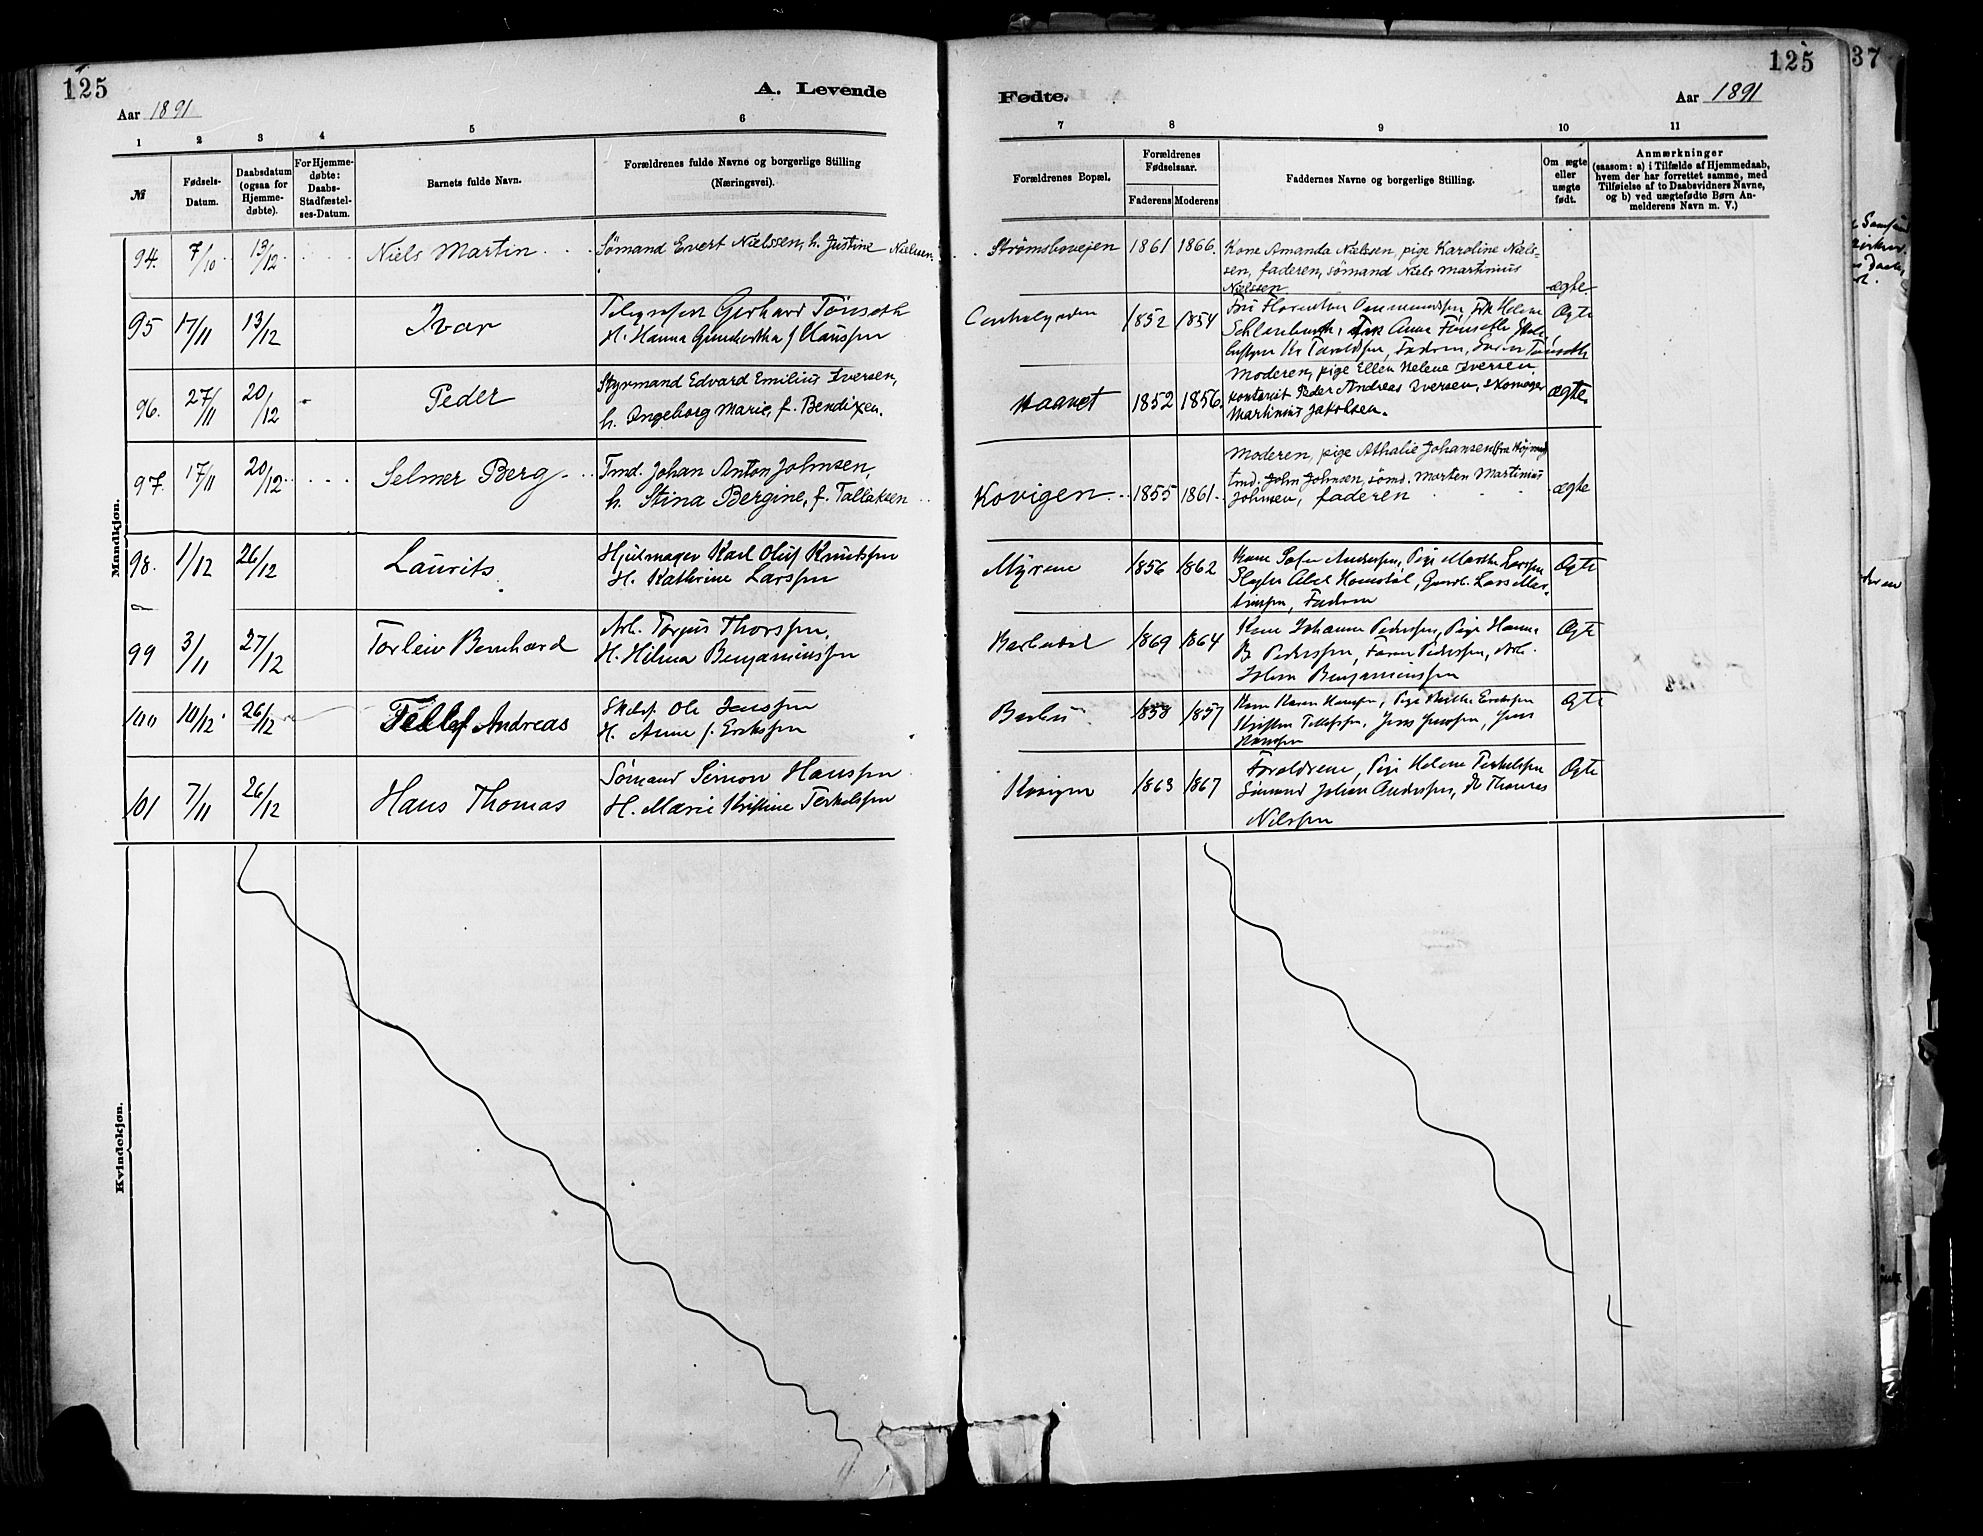 125
Aar 1891
A. Levende
Fødte.
Aar 1891
125
37
1 2 3 4 5 6 7 8 9 10 11
№
Fødsels-
Datum.
Daabsdatum
(ogsaa for
Hjemme-
døbte).
For Hjemme-
døbte:
Daabs-
Stadfæstel-
ses-Datum.
Barnets fulde Navn.
Forældrenes fulde Navne og borgerlige Stilling
(Næringsvei).
Forældrenes Bopæl.
Forældrenes
Fødselsaar.
Faderens Moderens
Faddernes Navne og borgerlige Stilling.
Om ægte
eller
uægte
født.
Anmærkninger
(saasom: a) i Tilfælde af Hjemmedaab,
hvem der har forrettet samme, med
Tilføielse af to Daabsvidners Navne,
og b) ved uægtefødte Børn An-
melderens Navn m. V.)
Mandkjøn.
94. 7/10 13/12 Niels Martin
Sømand Evert Nielssen, h. Justine Nielsen.
Strømsbovejen 1861 1866.
Kone Amanda Nielsen, pige Karoline Niels-
sen, faderen, sømand Niels Martinius
Nielssen
ægte.
95 17/11 13/12 Ivar
Telegrafist Gerhard Tønseth
H. Hanna f Clausen
1852 1854
Fru Helene
Anna Tønseth
Tønseth
Ægte
96. 27/11 20/12 Peder
Styrmand Edvard Emilius Iversen,
h. Ingeborg Marie, f. Bendixen.
Haavet 1852 1856.
Moderen, pige Ellen Helene Iversen,
kontorist Peder Andreas Iversen, skomager
Martinius Jakobsen.
ægte.
97. 17/11 20/12 Selmer Berg
Tmd. Johan Anton Johnsen,
h. Stina Bergine, f. Talleksen
Kovigen 1855 1861.
Moderen, pige Athalie Johansen
tmd. John Johnsen, sømd. Morten Martinius
Johnsen, faderen
ægte
98. 1/12 26/12 Laurits
Hjulmager Karl Oluf Knudssen
H. Kathrine Larssen
Myrene 1856 1862
Kone Andersen, Pige Marthe Larssen
Fadren
Ægte
99 3/11 27/12 Torleiv Bernhard
Arb. Torjus Thorssen,
H. Hilma Benjaminssen
Barbudal 1869 1864
Kone Johanne Pederssen, Pige Hanna
B. Pederssen, Pederssen, Arb.
Benjaminssen
Ægte
100 10/12 26/12 Tellef Andreas
Ole Jenssen
H. Anne f. Erikssen
Barbu 1858 1857
Kone Karen Hanssen, Pige Erikssen
Tellefssen, Jens Jenssen, Jens
Hanssen
Ægte
101 7/11 26/12 Hans Thomas
Sømand Simon Hanssen
H. Marie Kristine Terkelssen
Kovigen 1863 1867
Forældrene, Pige Helene Terkelssen
Sømand Johan Anderssen, Thomas
Nilssen
Ægte
Kvindekjøn.